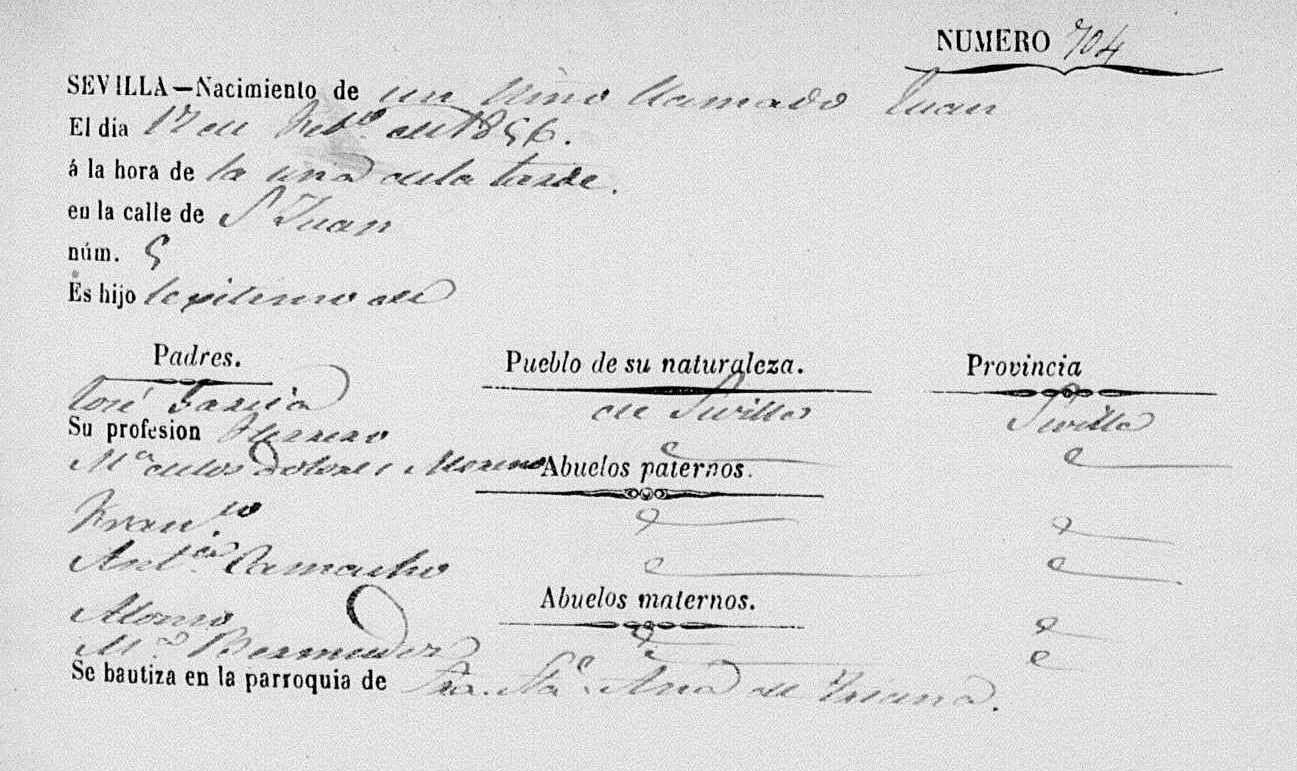 NUMERO 704
SEVILLA—Nacimiento de un Niño llamado Juan
El dia 17 de Feb.º de 1856.
á la hora de la una dela tarde.
en la calle de S Juan
núm. 5
Es hijo legitimo de
Padres. Pueblo de su naturaleza. Provincia
José Garcia de Sevilla Sevilla
Su profesion Herrero
M.ª delos Dolores Moreno
Abuelos paternos.
Fran.co
Ant.ª Camacho
Abuelos maternos.
Alonso
M.ª Bermudez
Se bautiza en la parroquia de Sra. Sta. Ana de Triana.